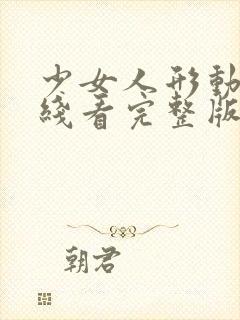 少女人形動
綫看完整版
朝君